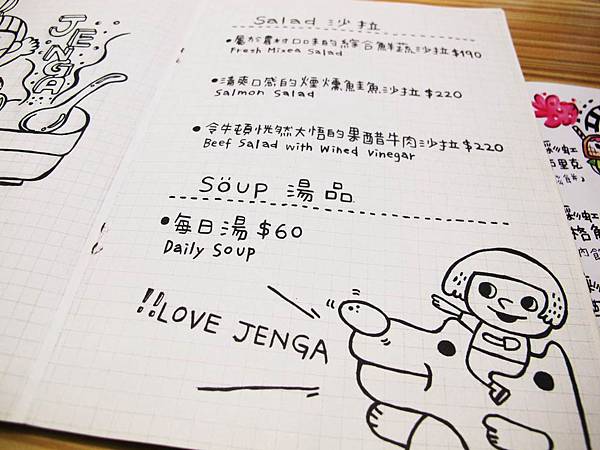 JENGA
Salad 沙拉
•屬於農村口味的綜合鮮蔬沙拉$190
Fresh Mixea Salad
•清爽口感的煙燻鮭魚沙拉$220
Salmon Salad
•令牛頓恍然大悟的果醋牛肉沙拉$220
Beef Salad with Wined Vinegar
SöUP 湯品
•每日湯$60
Daily Soup
!!LOVE JENGA
彩虹
彩虹
彩虹